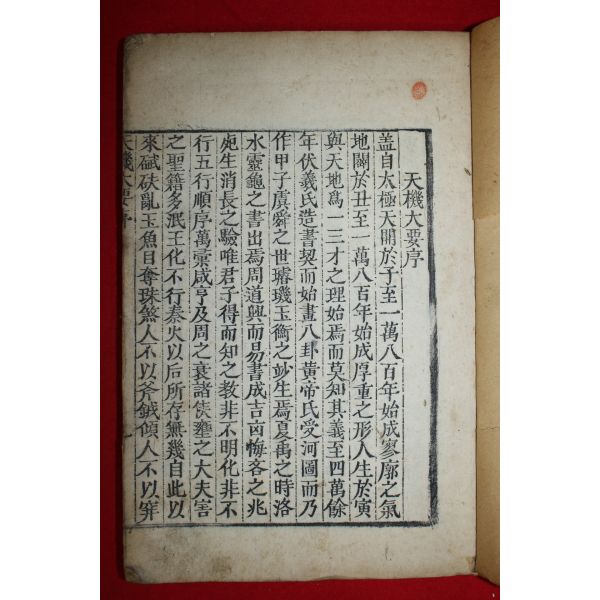 天機大要序
盖自太極天開於子至一萬八百年始成寥廓之氣
地闢於丑至一萬八百年始成厚重之形人生於寅
與天地爲一三才之理始焉而莫知其義至四萬餘
年伏羲氏造書契而始畫八卦黄帝氏受河圖而乃
作甲子虞舜之世璿璣玉衡之妙生焉夏禹之時洛
水靈龜之書出焉周道興而易書成吉凶悔吝之兆
危生消長之驗唯君子得而知之教非不明化非不
行五行順序萬彙咸亨及周之衰諸侯壅之大夫害
之聖籍多泯王化不行秦火以后所存無幾自此以
來碔砆亂玉魚目奪珠煞人不以斧鉞傾人不以穽
天機大要序